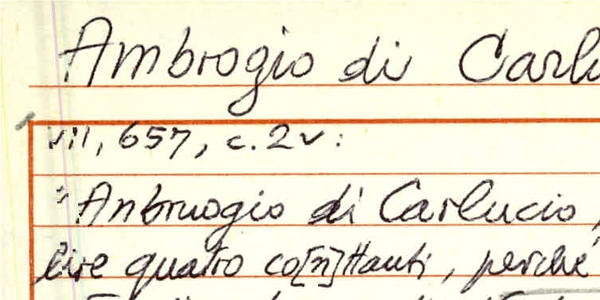 Ambrogio di Carlu
VII, 657, c.2v:
"Anbruogio di Carlucio,
lire quatro co[n]ttanti, perché